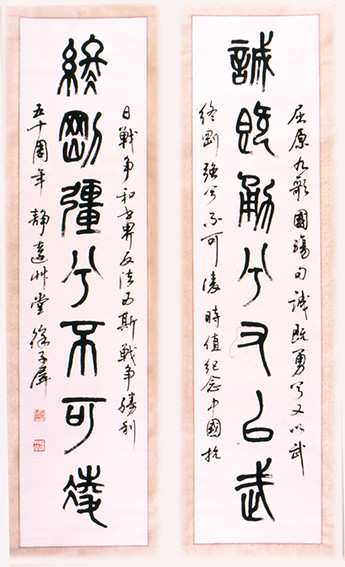 屈原九歌國殤句誠既勇兮又以武
誠既勇兮又以武
終剛強兮不可凌時值紀念中國抗
日戰争和世界反法西斯戰争勝利
終剛彊兮不可凌
五十周年靜遠艸堂徐子屏